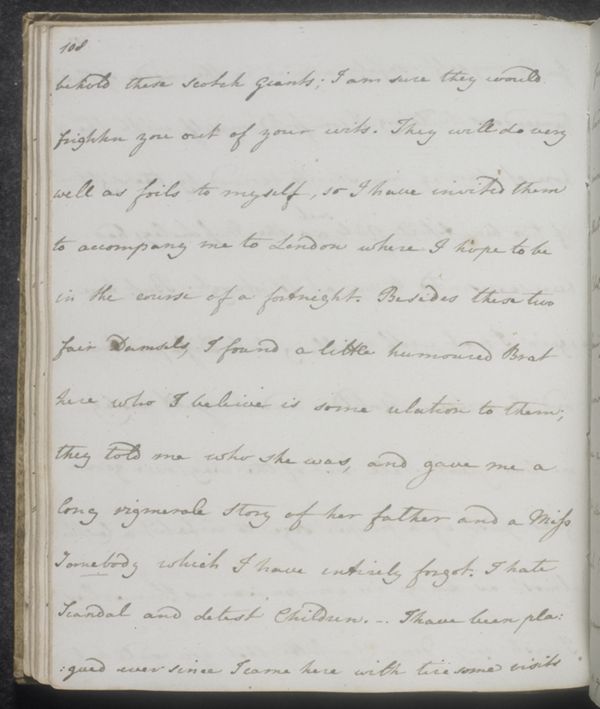 108
behold these Scotch Giants; I am sure they would
frighten you out of your wits. They will do very
well as foils to myself, so I have invited them
to accompany me to London where I hope to be
in the course of a fortnight. Besides these two
fair Damsels, I found a little humoured Brat
here who I beleive is some relation to them;
they told me who she was, and gave me a
long rigmerole story of her father and a Miss
Somebody which I have entirely forgot. I hate
Scandal and detest Children. -- I have been pla:
:gued ever since I came here with tiresome visits